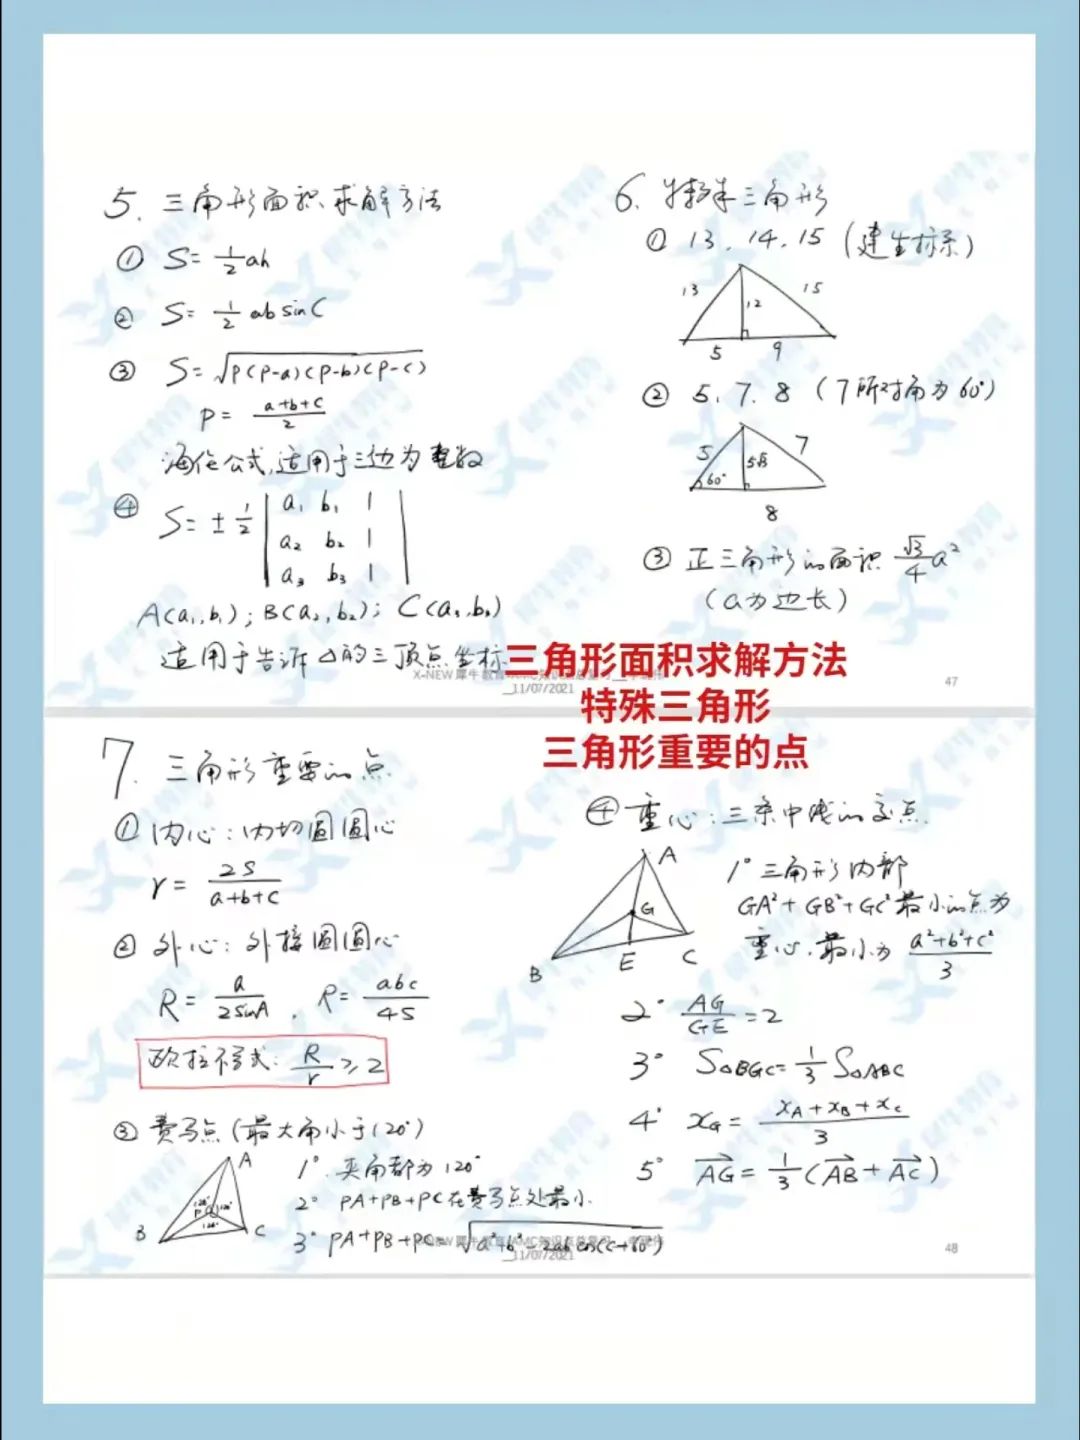 5. 三角形面积求解方法
① S= 1/2 ah
② S= 1/2 ab sinC
③ S= √P(P-a)(P-b)(P-c)
P= a+b+c/2
海伦公式,适用于三边为整数
④ S= ± 1/2 | a₁ b₁ 1 |
| a₂ b₂ 1 |
| a₃ b₃ 1 |
A(a₁,b₁); B(a₂,b₂); C(a₃,b₃)
适用于告诉△的三顶点坐标
6. 特殊三角形
① 13, 14, 15 (建坐标系)
13 12 15
5 9
② 5, 7, 8 (7所对角为60°)
5 5√3 7
60°
8
③ 正三角形的面积 √3/4 a²
(a为边长)
三角形面积求解方法
特殊三角形
三角形重要的点
X-NEW 犀牛教育
11/07/2021
47
7. 三角形重要的点
① 内心: 内切圆圆心
r= 2S/a+b+c
② 外心: 外接圆圆心
R= a/2sinA , R= abc/4S
欧拉不等式: R/r ≥ 2
③ 费马点 (最大角小于120°)
A
B
C
P
120° 120°
120°
1° 夹角都为120°
2° PA+PB+PC在费马点处最小
3° PA+PB+PC= √a²+b²-2ab cos(C+60°)
④ 重心: 三条中线的交点
A
G
B
E
C
1° 三角形内部
GA²+GB²+GC²最小的点为
重心,最小为 a²+b²+c²/3
2° AG/GE =2
3° S△BGC= 1/3 S△ABC
4° x_G= x_A+x_B+x_C/3
5° AG= 1/3 (AB+AC)
犀牛教育AMC知识点总复习
11/07/2021
48